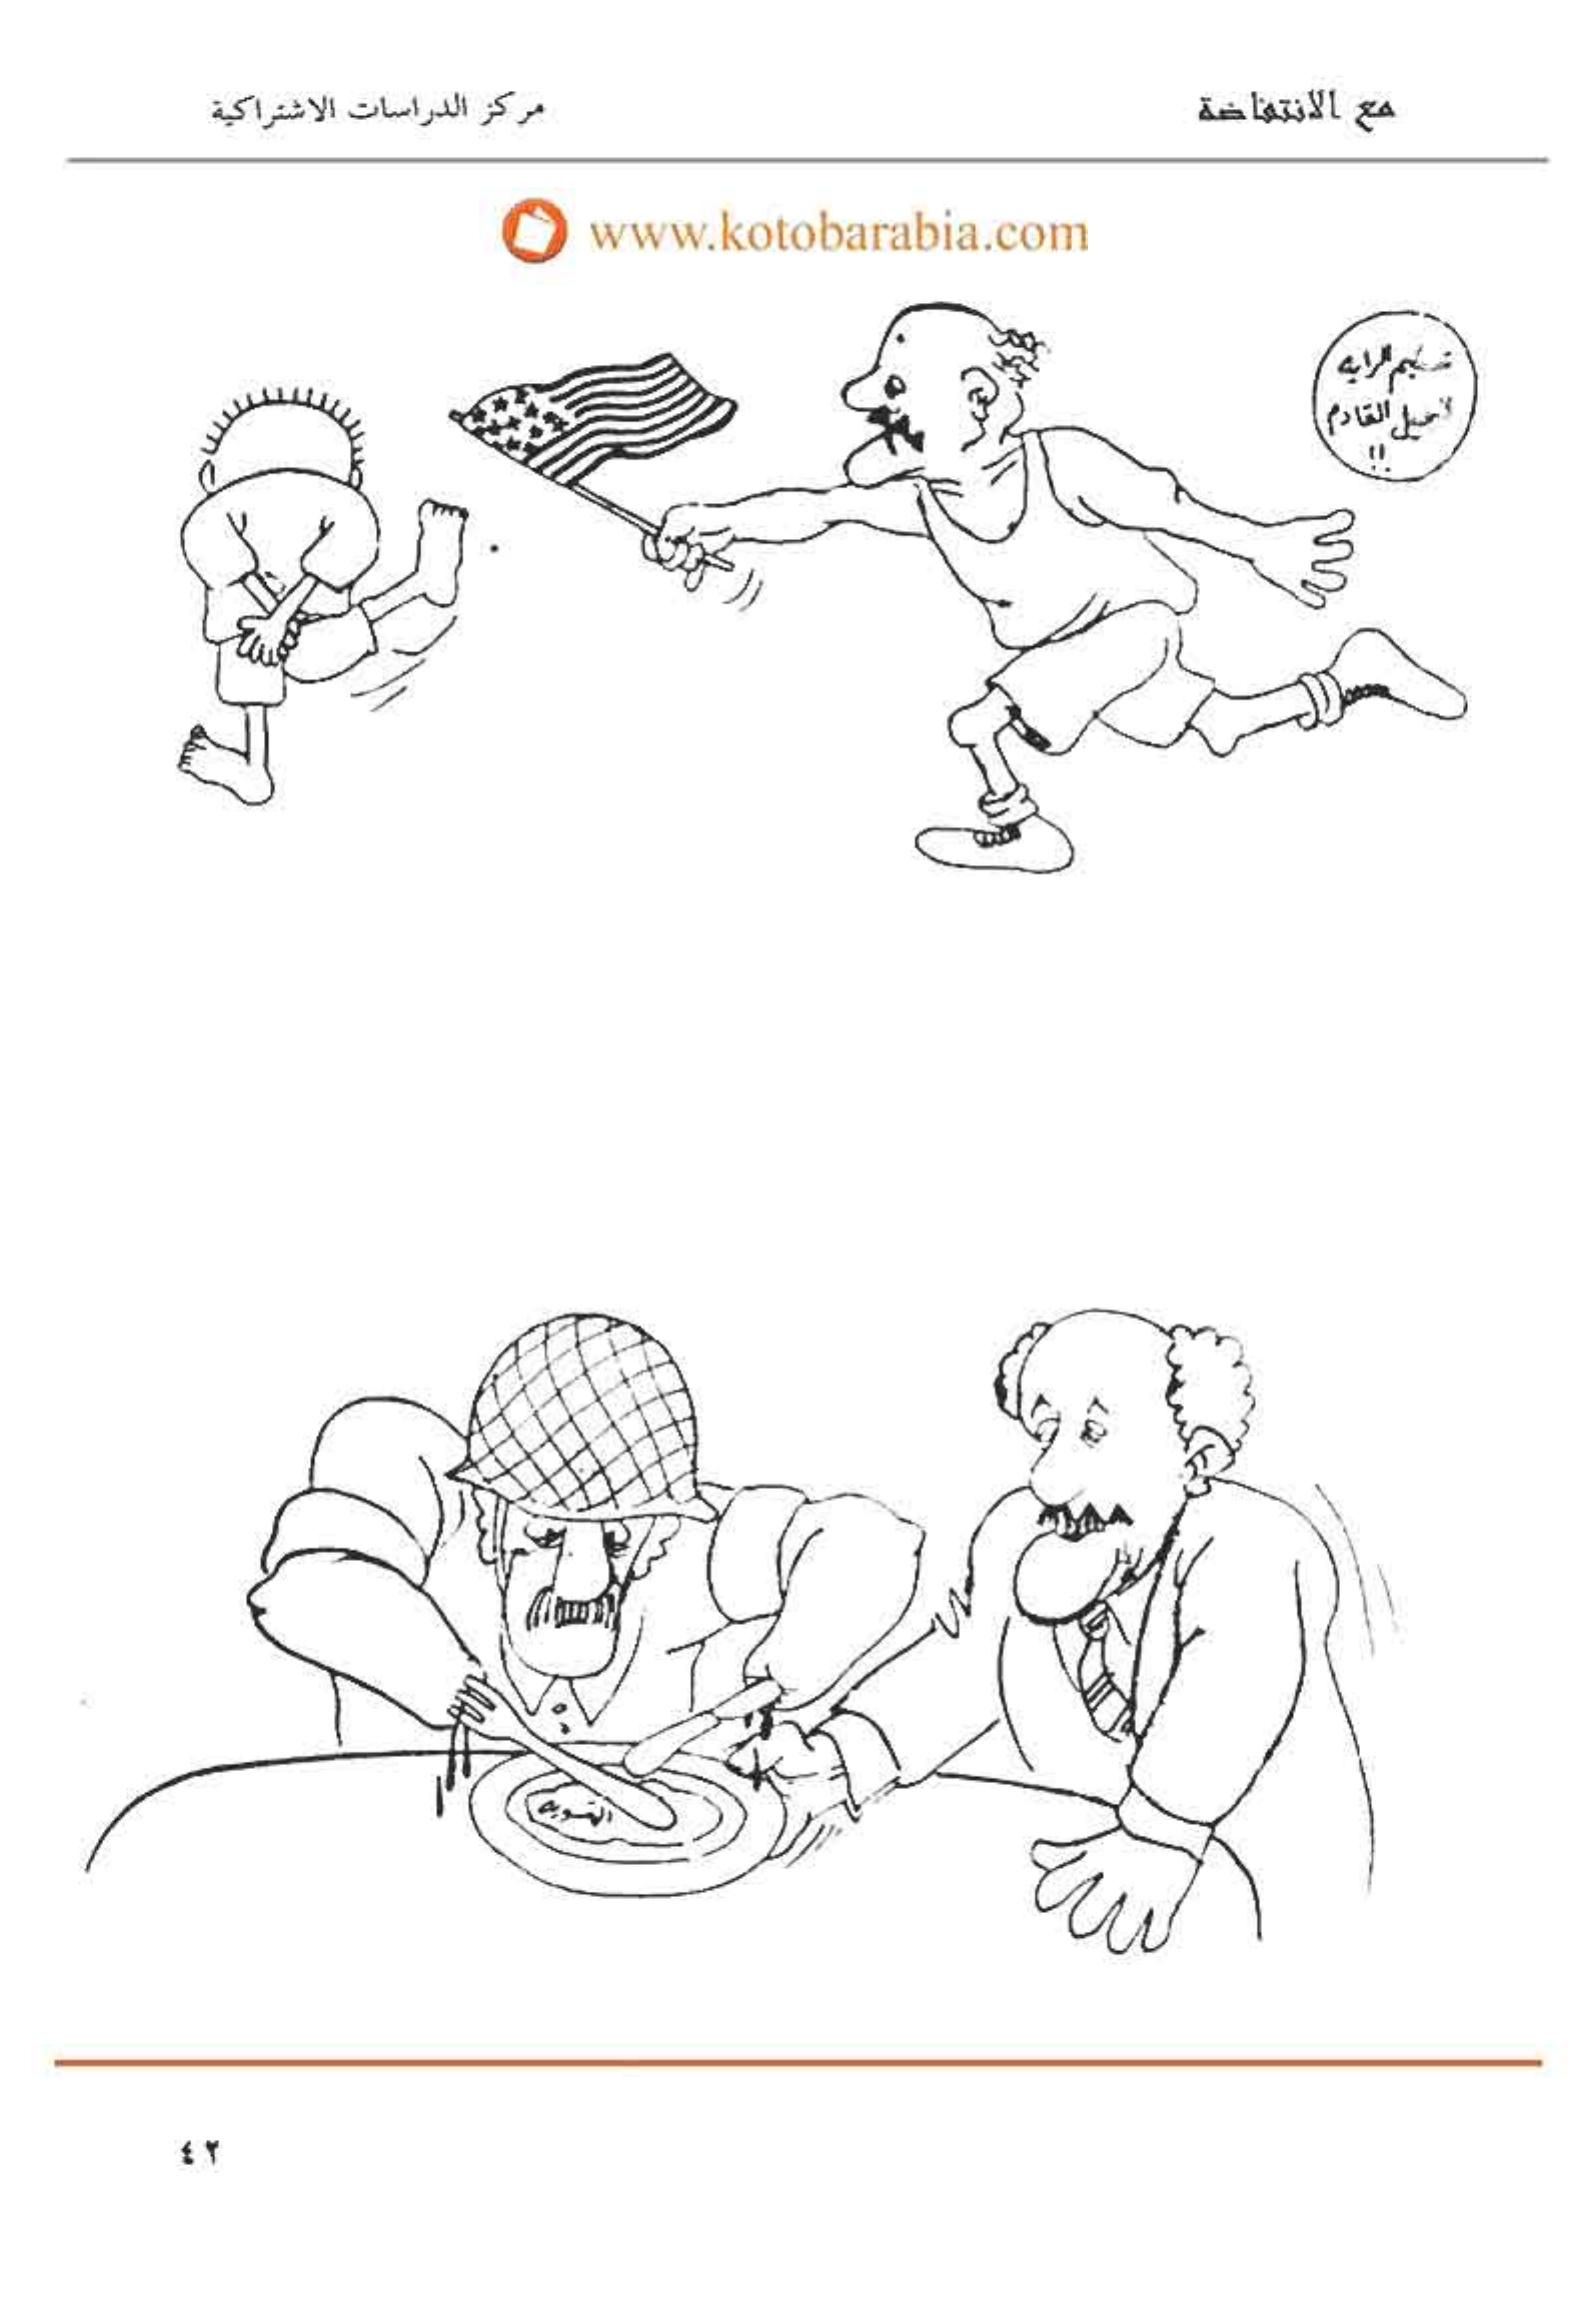 مع الانتفاضة
مركز الدراسات الاشتراكية
www.kotobarabia.com
تسليم الرايه
للجيل القادم
!!
٤٢